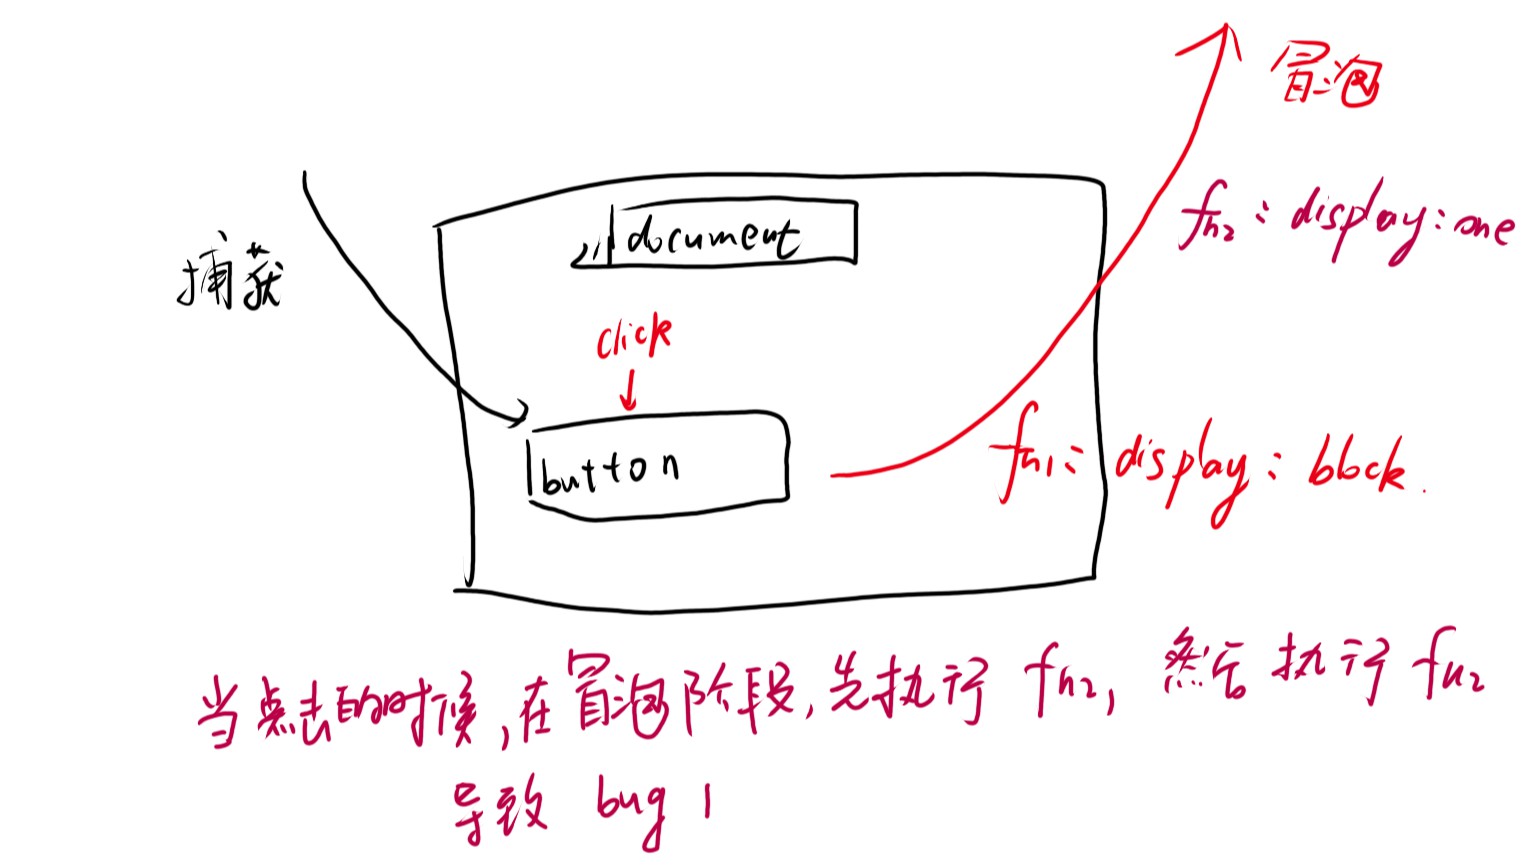 冒泡
fn2：display:one
document
捕获
click
button
fn1：display：block.
当点击的时候,在冒泡阶段,先执行 fn2, 然后执行 fn2
导致 bug 1